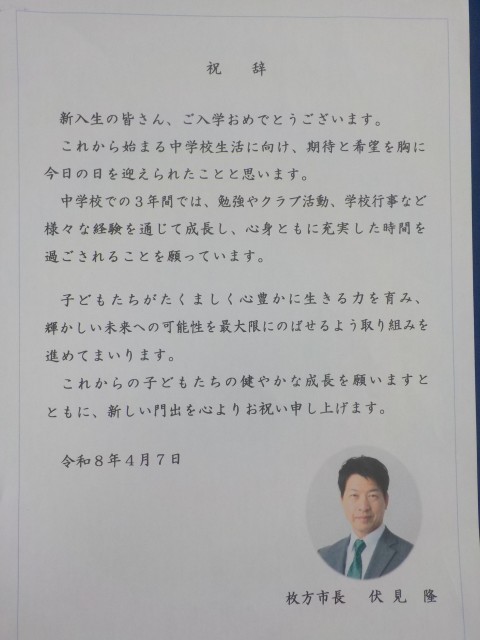 祝　辞
新入生の皆さん、ご入学おめでとうございます。
これから始まる中学校生活に向け、期待と希望を胸に
今日の日を迎えられたことと思います。
中学校での３年間では、勉強やクラブ活動、学校行事など
様々な経験を通じて成長し、心身ともに充実した時間を
過ごされることを願っています。
子どもたちがたくましく心豊かに生きる力を育み、
輝かしい未来への可能性を最大限にのばせるよう取り組みを
進めてまいります。
これからの子どもたちの健やかな成長を願いますと
ともに、新しい門出を心よりお祝い申し上げます。
令和８年４月７日
枚方市長　伏見　隆